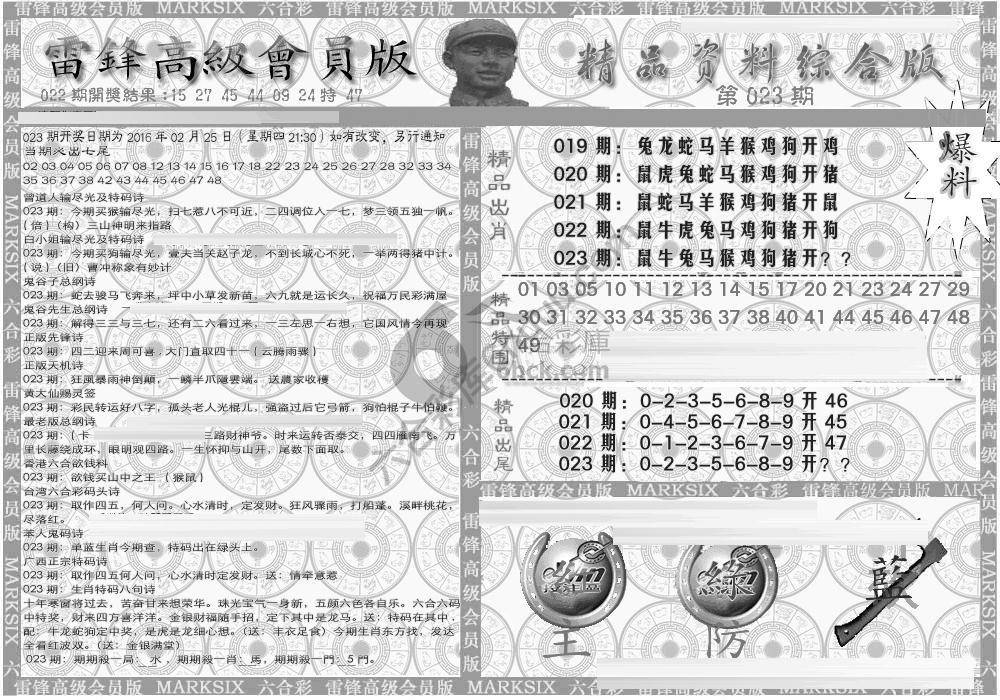 雷锋高级会员版 MARKSIX 六合彩 雷锋高级会员版 MARKSIX 六合彩 雷锋高级会员版 MARKSIX 六合彩 雷锋
雷鋒高級會員版
精品资料综合版
022期開獎結果:15 27 45 44 09 24特 47
第023期
023期开奖日期为2016年02月25日(星期四21:30)如有改变,另行通知
当期必出七尾
02 03 04 05 06 07 08 12 13 14 15 16 17 18 22 23 24 25 26 27 28 32 33 34
35 36 37 38 42 43 44 45 46 47 48
曾道人输尽光及特码诗
023期:今期买猴输尽光,扫七惹八不可近,二四调位人一七,梦三领五独一帆。
{倍}(构)三山神明来指路
白小姐输尽光及特码诗
023期:今期买狗输尽光,壹夫当关赵子龙,不到长城心不死,一举两得猪中计。
{说}(旧)曹冲称象有妙计
鬼谷子总纲诗
023期:蛇去骏马飞奔来,坪中小草发新苗,六九就是运长久,祝福万民彩满屋
鬼谷先生总纲诗
023期:解得三三与三七,还有二六看过来,一三左思一右想,它国风情今再现
正版先锋诗
023期:四二迎来周可喜,大门直取四十一{云腾雨骤}
正版天机诗
023期:狂風暴雨神倒颠,一鳞半爪隐雲端。送農家收穫
黄大仙赐灵签
023期:彩民转运好八字,孤头老人光棍儿,强盗过后它弓箭,狗怕棍子牛怕鞭。
最老版总纲诗
023期:{卡 三路财神爷。时来运转否泰交,四四雁南飞。万
里长藤绕成环,眼明观四路。一生怀抑与山开,尾数下面取。
香港六合欲钱料
023期:欲钱买山中之王 {猴鼠}
台湾六合彩码头诗
023期:取作四五,何人问。心水清时,定发财。狂风骤雨,打船蓬。溪畔桃花,
尽落红。
笨人鬼码诗
023期:单蓝生肖今期查,特码出在绿头上。
广西正宗特码诗
023期:取作四五何人问,心水清时定发财。送:情牵意惹
023期:生肖特码八句诗
十年寒窗将过去,苦奋甘来想荣华。珠光宝气一身新,五颜六色各自乐。六合六码
中特奖,财来四方喜洋洋。金银财福随手招,定下其中是龙马。送:特码在其中,
配:牛龙蛇狗定中奖,是虎是龙细心想。(送:丰衣足食)今期生肖东方找,发达
全看红波双。(送:金银满堂)
023期:期期殺一局:水,期期殺一肖:馬,期期殺一門:5門。
精品出肖
019期:兔龙蛇马羊猴鸡狗开鸡
020期:鼠虎兔蛇马猴鸡狗开猪
021期:鼠蛇马羊猴鸡狗猪开鼠
022期:鼠牛虎兔马鸡狗猪开狗
023期:鼠牛兔马猴鸡狗猪开??
爆料
精品特围
01 03 05 10 11 12 13 14 15 17 20 21 23 24 27 29
30 31 32 33 34 35 36 37 38 40 41 44 45 46 47 48
49
精品出尾
020期:0-2-3-5-6-8-9开46
021期:0-4-5-6-7-8-9开45
022期:0-1-2-3-6-7-9开47
023期:0-2-3-5-6-8-9开??
雷锋高级会员版 MARKSIX 六合彩 雷锋高级会员版 MAR
綠
藍
主
防
雷锋高级会员版 MARKSIX 六合彩 雷锋高级会员版 MARKSIX 六合彩 雷锋高级会员版 MARKSIX 六合彩